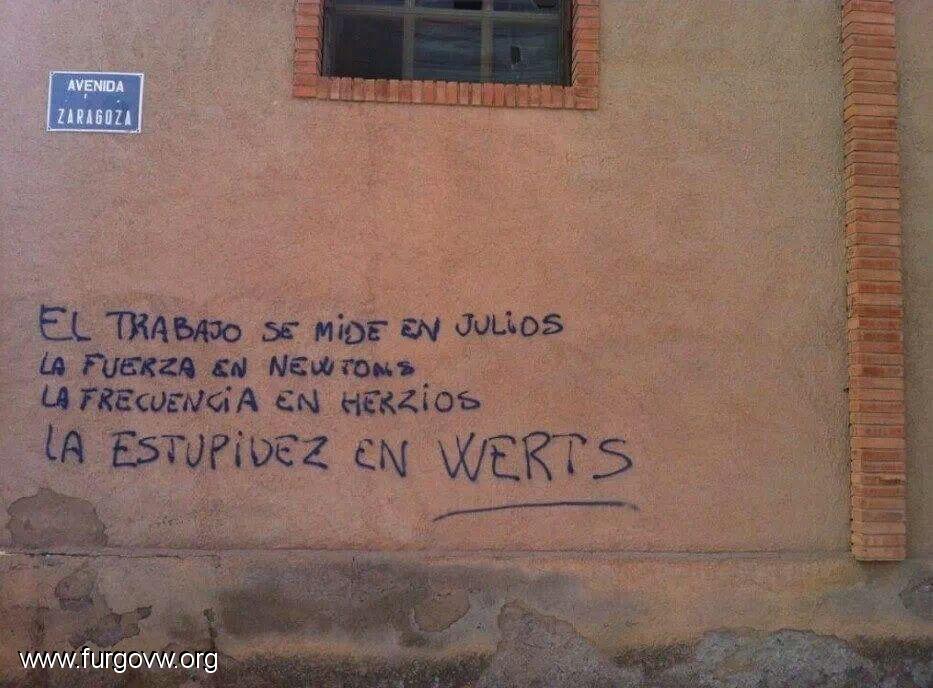 AVENIDA
ZARAGOZA
EL TRABAJO SE MIDE EN JULIOS
LA FUERZA EN NEWTONS
LA FRECUENCIA EN HERZIOS
LA ESTUPIDEZ EN WERTS
www.furgovw.org